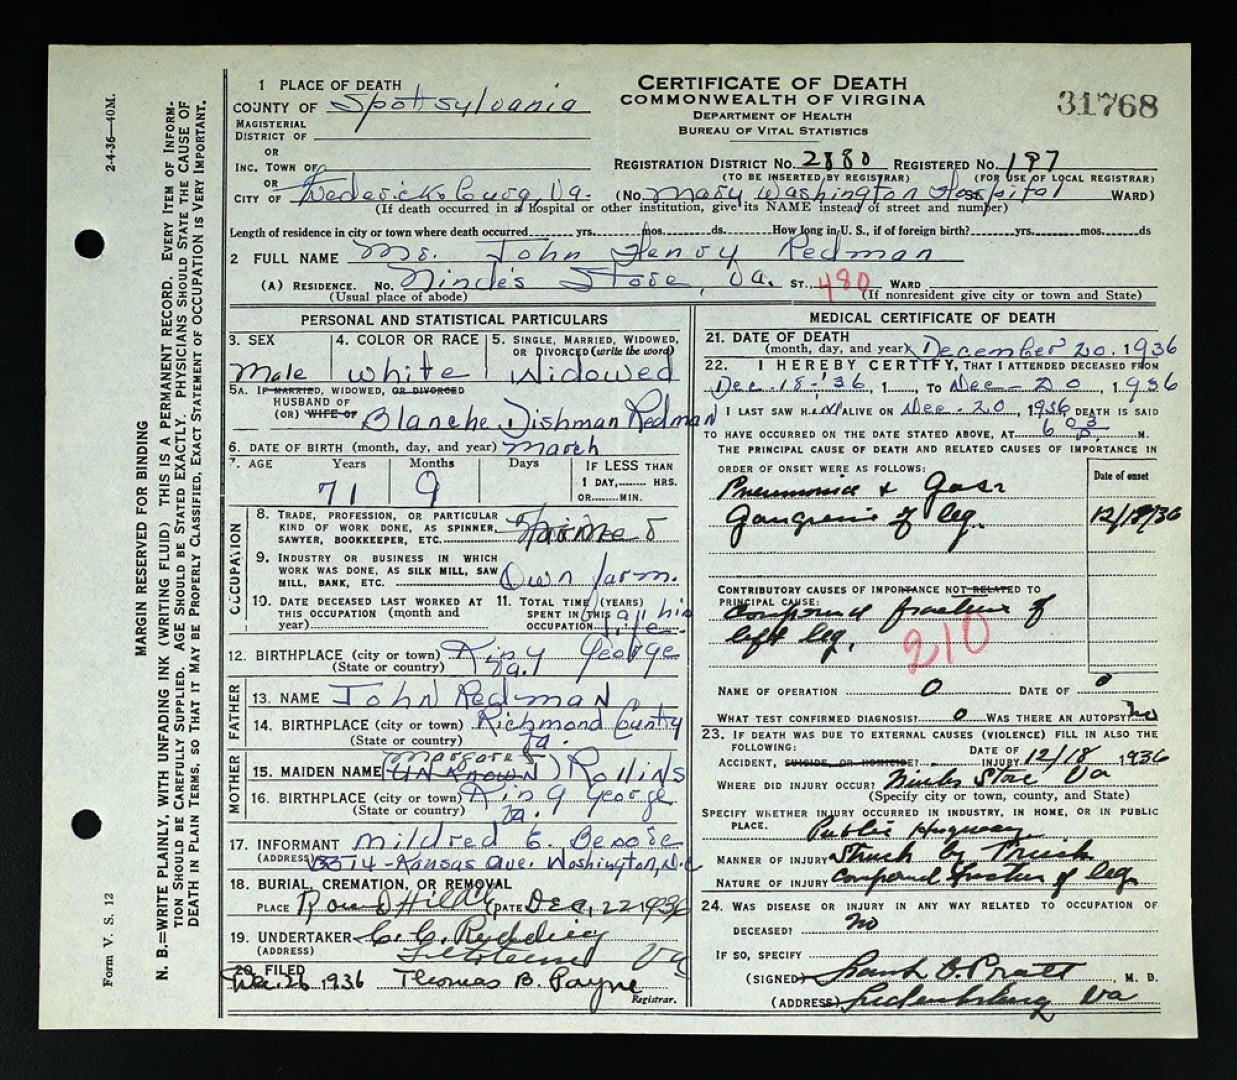 CERTIFICATE OF DEATH
COMMONWEALTH OF VIRGINIA
DEPARTMENT OF HEALTH
BUREAU OF VITAL STATISTICS
31768
1 PLACE OF DEATH
COUNTY OF Spottsylvania
MAGISTERIAL
DISTRICT OF
OR
INC. TOWN OF
OR
CITY OF Fredericksburg, Va. (No. Mary Washington Hospital St. WARD)
REGISTRATION DISTRICT NO. 2880 REGISTERED NO. 187
(TO BE INSERTED BY REGISTRAR) (FOR USE OF LOCAL REGISTRAR)
(If death occurred in a hospital or other institution, give its NAME instead of street and number)
Length of residence in city or town where death occurred yrs. mos. ds. How long in U. S., if of foreign birth? yrs. mos. ds
2 FULL NAME Mr. John Henry Redman
(A) RESIDENCE. No. Ninde's Store, Va. ST., 480 WARD
(Usual place of abode) (If nonresident give city or town and State)
PERSONAL AND STATISTICAL PARTICULARS
3. SEX Male
4. COLOR OR RACE White
5. SINGLE, MARRIED, WIDOWED,
OR DIVORCED (write the word)
Widowed
5A. IF MARRIED, WIDOWED, OR DIVORCED
HUSBAND OF
(OR) WIFE OF Blanche Dishman Redman
6. DATE OF BIRTH (month, day, and year) March
7. AGE Years Months Days IF LESS THAN
1 DAY, HRS.
OR MIN.
71 9
OCCUPATION
8. TRADE, PROFESSION, OR PARTICULAR
KIND OF WORK DONE, AS SPINNER,
SAWYER, BOOKKEEPER, ETC. Farmer
9. INDUSTRY OR BUSINESS IN WHICH
WORK WAS DONE, AS SILK MILL, SAW
MILL, BANK, ETC. Own farm.
10. DATE DECEASED LAST WORKED AT
THIS OCCUPATION (month and
year)
11. TOTAL TIME (YEARS)
SPENT IN THIS
OCCUPATION all his life
12. BIRTHPLACE (city or town) King George
(State or country) Va.
FATHER
13. NAME John Redman
14. BIRTHPLACE (city or town) Richmond County
(State or country) Va.
MOTHER
15. MAIDEN NAME Margaret (UNKnown) Rollins
16. BIRTHPLACE (city or town) King George
(State or country) Va.
17. INFORMANT Mildred E.
(ADDRESS) 3514-Kansas Ave. Washington, D.C
18. BURIAL, CREMATION, OR REMOVAL
PLACE DATE Dec, 22 1936
19. UNDERTAKER C. C.
(ADDRESS) Va
20. FILED
Dec. 26 1936 Thomas B. Payne
Registrar.
MEDICAL CERTIFICATE OF DEATH
21. DATE OF DEATH
(month, day, and year) December 20. 1936
22. I HEREBY CERTIFY, THAT I ATTENDED DECEASED FROM
Dec 18-'36, 1 TO Dec - 20 1936
I LAST SAW H im ALIVE ON Dec - 20, 1936 DEATH IS SAID
TO HAVE OCCURRED ON THE DATE STATED ABOVE, AT M.
THE PRINCIPAL CAUSE OF DEATH AND RELATED CAUSES OF IMPORTANCE IN
ORDER OF ONSET WERE AS FOLLOWS:
Date of onset
Pneumonia & Gas
Gangrene of leg. 12/18/36
CONTRIBUTORY CAUSES OF IMPORTANCE NOT RELATED TO
PRINCIPAL CAUSE:
Compound fracture of
left leg,
210
NAME OF OPERATION 0 DATE OF 0
WHAT TEST CONFIRMED DIAGNOSIS? 0 WAS THERE AN AUTOPSY? no
23. IF DEATH WAS DUE TO EXTERNAL CAUSES (VIOLENCE) FILL IN ALSO THE
FOLLOWING:
ACCIDENT, SUICIDE, OR HOMICIDE? DATE OF INJURY 12/18 1936
WHERE DID INJURY OCCUR? Ninde Store Va
(Specify city or town, county, and State)
SPECIFY WHETHER INJURY OCCURRED IN INDUSTRY, IN HOME, OR IN PUBLIC
PLACE. Public Highway
MANNER OF INJURY Struck by Truck
NATURE OF INJURY Compound fracture of leg
24. WAS DISEASE OR INJURY IN ANY WAY RELATED TO OCCUPATION OF
DECEASED? No
IF SO, SPECIFY
(SIGNED) Pratt M. D.
(ADDRESS) Fredericksburg Va
2-4-36—40M.
MARGIN RESERVED FOR BINDING
N. B.—WRITE PLAINLY, WITH UNFADING INK (WRITING FLUID) THIS IS A PERMANENT RECORD. EVERY ITEM OF INFORMA-
TION SHOULD BE CAREFULLY SUPPLIED. AGE SHOULD BE STATED EXACTLY. PHYSICIANS SHOULD STATE THE CAUSE OF
DEATH IN PLAIN TERMS, SO THAT IT MAY BE PROPERLY CLASSIFIED. EXACT STATEMENT OF OCCUPATION IS VERY IMPORTANT.
Form V. S. 12